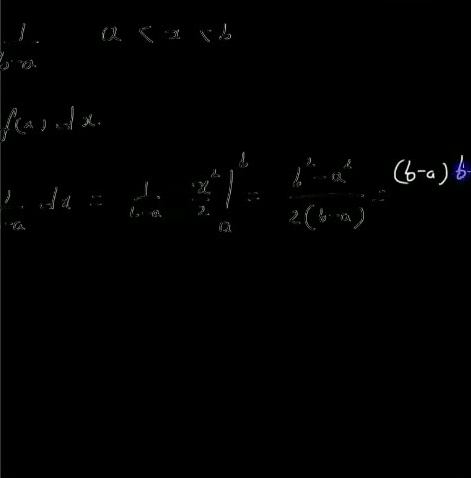 1/b-a a < x < b
f(x) dx.
1/-a dx = 1/b-a x²/2 |ₐᵇ = b²-a²/2(b-a) = (b-a) b-